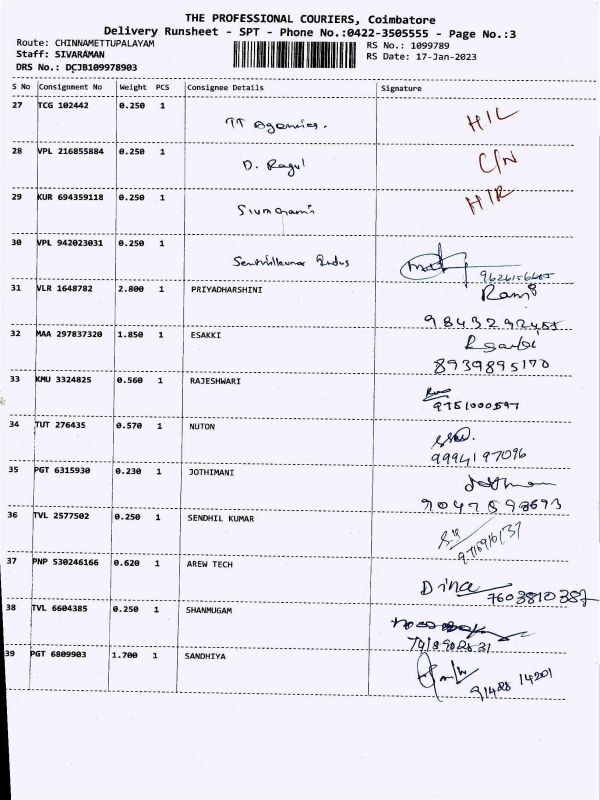 THE PROFESSIONAL COURIERS, Coimbatore
Delivery Runsheet - SPT - Phone No.:0422-3505555 - Page No.:3
Route: CHINNAMETTUPALAYAM
RS No.: 1099789
Staff: SIVARAMAN
RS Date: 17-Jan-2023
DRS No.: DCJB109978903
S No Consignment No Weight PCS Consignee Details Signature
27 TCG 102442 0.250 1 TT Agencies. H/L
28 VPL 216855884 0.250 1 D. Ragul C/N
29 KUR 694359118 0.250 1 H/R
30 VPL 942023031 0.250 1
31 VLR 1648782 2.800 1 PRIYADHARSHINI
32 MAA 297837320 1.850 1 ESAKKI
8939895170
33 KMU 3324825 0.560 1 RAJESHWARI
9751000597
34 TUT 276435 0.570 1 NUTON
9994197096
35 PGT 6315930 0.230 1 JOTHIMANI
36 TVL 2577502 0.250 1 SENDHIL KUMAR
37 PNP 530246166 0.620 1 AREW TECH
Dina
7603810387
38 TVL 6604385 0.250 1 SHANMUGAM
39 PGT 6809903 1.700 1 SANDHIYA